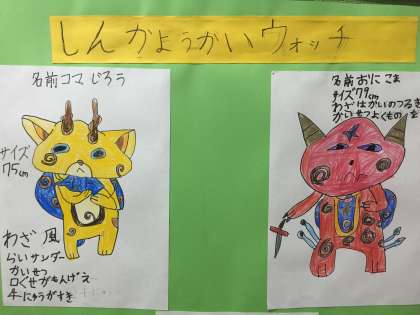 しんかようかいウォッチ
名前コマじろう
サイズ
75cm
わざ 風
らいサンダー
かいせつ
口くせがもんげえ
牛にゅうがすき
名前おにこま
サイズ79cm
わざはかいのつるぎ
かいせつよくもの